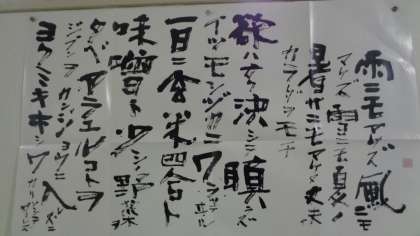 雨ニモマケズ風ニモ
マケズ雪ニモ夏ノ
暑サニモマケヌ丈夫
ナカラダヲモチ
慾ハナク決シテ瞋ラズ
イツモシヅカニワラッテヰル
一日ニ玄米四合ト
味噌ト少シノ野菜ヲ
タベアラユルコトヲ
ジブンヲカンジョウニ入レズニ
ヨクミキキシワカリ